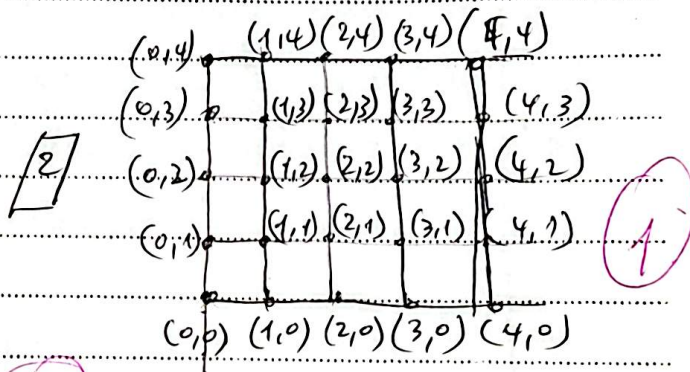 (1,4) (2,4) (3,4) (4,4)
(0,4)
(0,3) (1,3) (2,3) (3,3) (4,3)
2 (0,2) (1,2) (2,2) (3,2) (4,2)
(0,1) (1,1) (2,1) (3,1) (4,1)
1
(0,0) (1,0) (2,0) (3,0) (4,0)